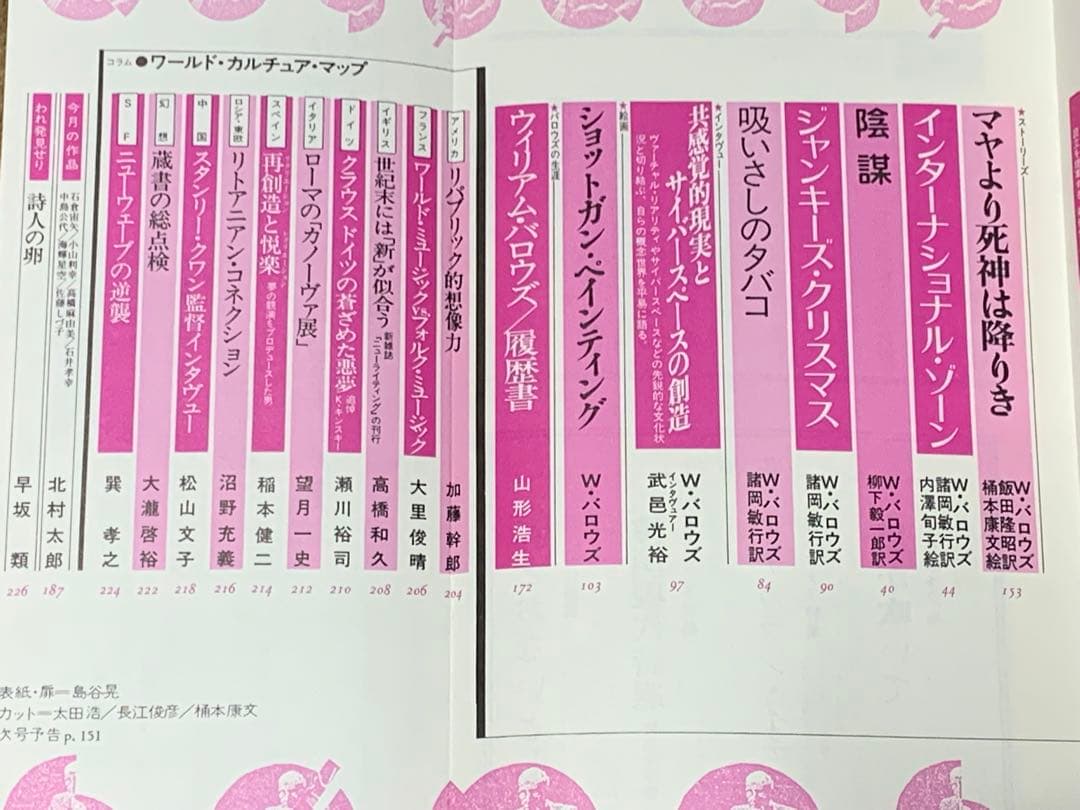 ★ストーリーズ
マヤより死神は降りき
W・バロウズ
飯田隆昭訳
桶本康文絵
153
インターナショナル・ゾーン
W・バロウズ
諸岡敏行訳
内澤旬子絵
44
陰謀
W・バロウズ
柳下毅一郎訳
40
ジャンキーズ・クリスマス
W・バロウズ
諸岡敏行訳
90
吸いさしのタバコ
W・バロウズ
諸岡敏行訳
84
★インタヴュー
共感覚的現実と
サイバースペースの創造
ヴァーチャル・リアリティやサイバースペースなどの先鋭的な文化状
況と切り結ぶ、自らの概念世界を平易に語る。
W・バロウズ
インタヴュアー
武邑光裕
97
★絵画
ショットガン・ペインティング
W・バロウズ
103
★バロウズの生涯
ウィリアム・バロウズ/履歴書
山形浩生
172
コラム●ワールド・カルチュア・マップ
アメリカ
リパブリック的想像力
加藤幹郎
204
フランス
ワールド・ミュージックvs.フォルク・ミュージック
大里俊晴
206
イギリス
世紀末には「新」が似合う
新雑誌
「ニューライティング」の刊行
高橋和久
208
ドイツ
クラウス、ドイツの蒼ざめた悪夢
追悼
K・キンスキー
瀬川裕司
210
イタリア
ローマの「カノーヴァ展」
望月一史
212
スペイン
再創造と悦楽
夢の競演をプロデュースした男
稲本健二
214
ロシア・東欧
リトアニアン・コネクション
沼野充義
216
中国
スタンリー・クワン監督インタヴュー
松山文子
218
幻想
蔵書の総点検
大瀧啓裕
222
SF
ニューウェーブの逆襲
巽孝之
224
今月の作品
石倉宙矢/小山利幸/高橋麻由美/石井孝幸
中島公代/海輝星空/佐藤しづ子
北村太郎
187
われ発見せり
詩人の卵
早坂類
226
表紙・扉=島谷晃
カット=太田浩/長江俊彦/桶本康文
次号予告p. 151